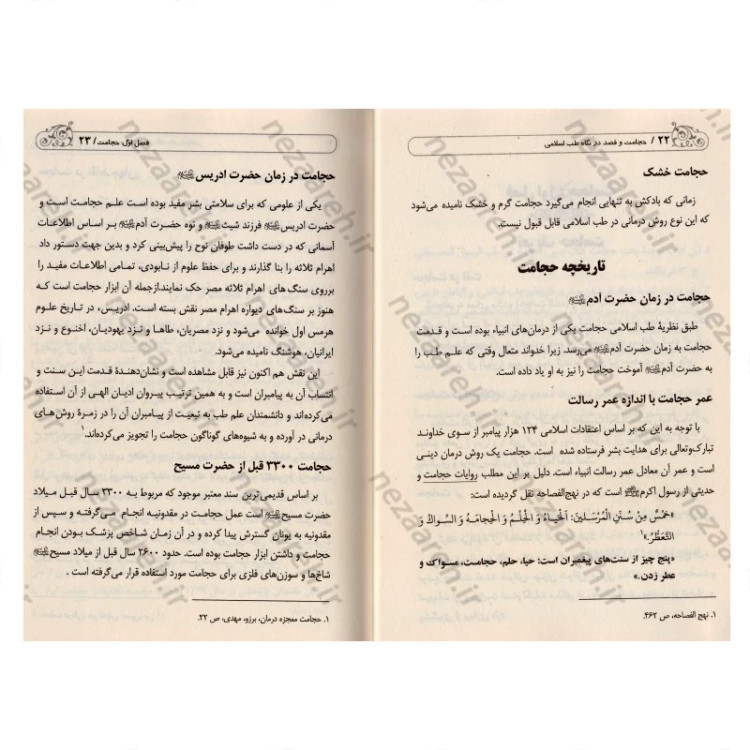 ۲۲ / حجامت و فصد در نگاه طب اسلامی
حجامت خشک
زمانی که بادکش به تنهایی انجام می‌گیرد حجامت گرم و خشک نامیده می‌شود
که این نوع روش درمانی در طب اسلامی قابل قبول نیست.
تاریخچه حجامت
حجامت در زمان حضرت آدم
طبق نظریهٔ طب اسلامی حجامت یکی از درمان‌های انبیاء بوده است و قدمت
حجامت به زمان حضرت آدم می‌رسد. زیرا خدواند متعال وقتی که علـم طب را
به حضرت آدم آموخت حجامت را نیز به او یاد داده است.
عمر حجامت با اندازه عمر رسالت
با توجه به این که بر اساس اعتقادات اسلامی ۱۲۴ هزار پیامبر از سوی خداوند
تبارک‌وتعالی برای هدایت بشر فرستاده شده است. حجامت یک روش درمان دینـی
است و عمر آن معادل عمر رسالت انبیاء است. دلیل بر این مطلب روایات حجامت و
حدیثی از رسول اکرم است که در نهج‌الفصاحه نقل گردیده است:
«خَمْسٌ مِنْ سُنَنِ الْمُرْسَلینَ: اَلْحَیاءُ وَ الْحِلْـمُ وَ الْحِجامَـةُ وَ السِّـواكُ وَ
التَّعَطُّرُ.»۱
«پنج چیز از سنت‌های پیغمبران است: حیا، حلم، حجامـت، مسـواک و
عطر زدن.»
۱. نهج الفصاحه، ص ۴۶۲.
فصل اول: حجامت / ۲۳
حجامت در زمان حضرت ادریس
یکی از علومی که برای سلامتی بشر مفید بوده است علـم حجامـت اسـت و
حضرت ادریس فرزند شیث و نوه حضرت آدم بر اساس اطلاعات
آسمانی که در دست داشت طوفان نوح را پیش‌بینی کرد و بدین جهت دستور داد
اهرام ثلاثه را بنا گذارند و برای حفظ علوم از نابودی، تمـامی اطلاعـات مفیـد را
برروی سنگ‌های اهرام ثلاثه مصر حک نمایندازجمله آن ابزار حجامت است که
هنوز بر سنگ‌های دیواره اهرام مصر نقش بسته است. ادریس، در تاریخ علـوم
هرمس اول خوانده می‌شود و نزد مصریان، طاهـا و نـزد یهودیـان، اخنـوع و نـزد
ایرانیان، هوشنگ نامیده می‌شود.
این نقش هم اکنون نیز قابل مشاهده است و نشان‌دهندهٔ قدمت این سنت و
انتساب آن به پیامبران است و به همین ترتیب پیـروان ادیـان الهـی از آن استفاده
می‌کرده‌اند و دانشمندان علم طب به تبعیـت از پیـامبران آن را در زمـرهٔ روش‌هـای
درمانی در آورده و به شیوه‌های گوناگون حجامت را تجویز می‌کرده‌اند.۱
حجامت ۳۳۰۰ قبل از حضرت مسیح
بر اساس قدیمی‌ترین سند معتبر موجود که مربوط بـه ۳۳۰۰ سـال قبـل از میـلاد
حضرت مسیح است عمل حجامت در مقدونیـه انجـام می‌گرفتـه و سـپس از
مقدونیه به یونان گسترش پیدا کرده و در آن زمان شاخص پزشـک بودن انجام
حجامت و داشتن ابزار حجامت بوده است. حدود ۲۶۰۰ سال قبل از میلاد مسیح
شاخ‌ها و سوزن‌های فلزی برای حجامت مورد استفاده قرار می‌گرفته است .
۱. حجامت معجزه درمان، برزو، مهدی، ص ۲۲.
nezaareh.ir